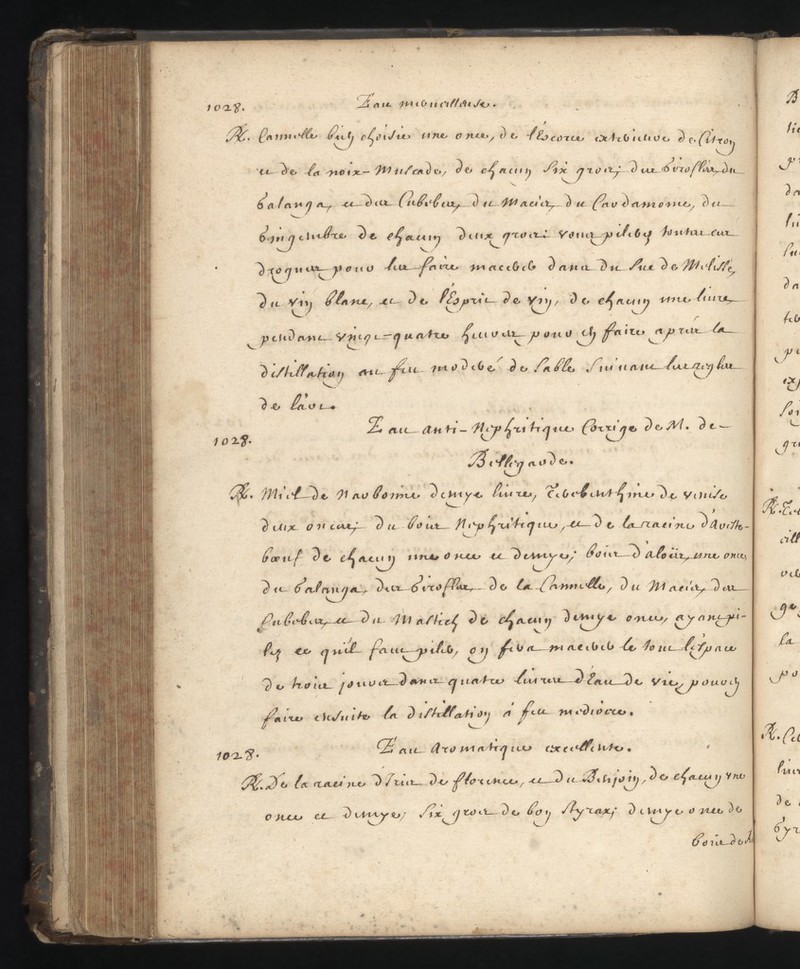 1028. Eau merueilleuse.
℞. Cannelle bien choisie une once, de l'Escorce exterieure de Citron
et de la noix-Muscade, de chacun six gros; des Girofles, du
Galanga, et des Cubebes, du Macis, du Cardamome, du
Gingembre de chacun deux gros: vous pilerez toutes ces
drogues pour les faire macerer dans du suc de Melisse,
du vin blanc, et de l'Esprit de vin, de chacun une liure
pendant vingt-quatre heures pour en faire apres la
distillation au feu moderé de sable suiuant les regles
de l'art.
1028. Eau anti-Nephritique Corrigé de M. de-
Bellegarde.
℞. Miel de Narbonne demye liure, Terebenthine de venise
deux onces; du bois Nephritique, et de la racine d'Areste-
bœuf de chacun une once et demye; bois d'aloës, une once
du Galanga, des Girofles, de la Cannelle, du Macis, des
Cubebes, et du Mastich de chacun demye once, ayant pi-
lez ce qu'il faut piler, on fera macerer le tout l'espace
de trois jours dans quatre liures d'Eau de vie, pour en
faire ensuite la distillation à feu mediocre.
1028. Eau Aromatique excellente.
℞. De la racine d'Iris de florence, et du Benjoin, de chacun vne
once et demye; six gros de bon styrax; demye once de
bois de